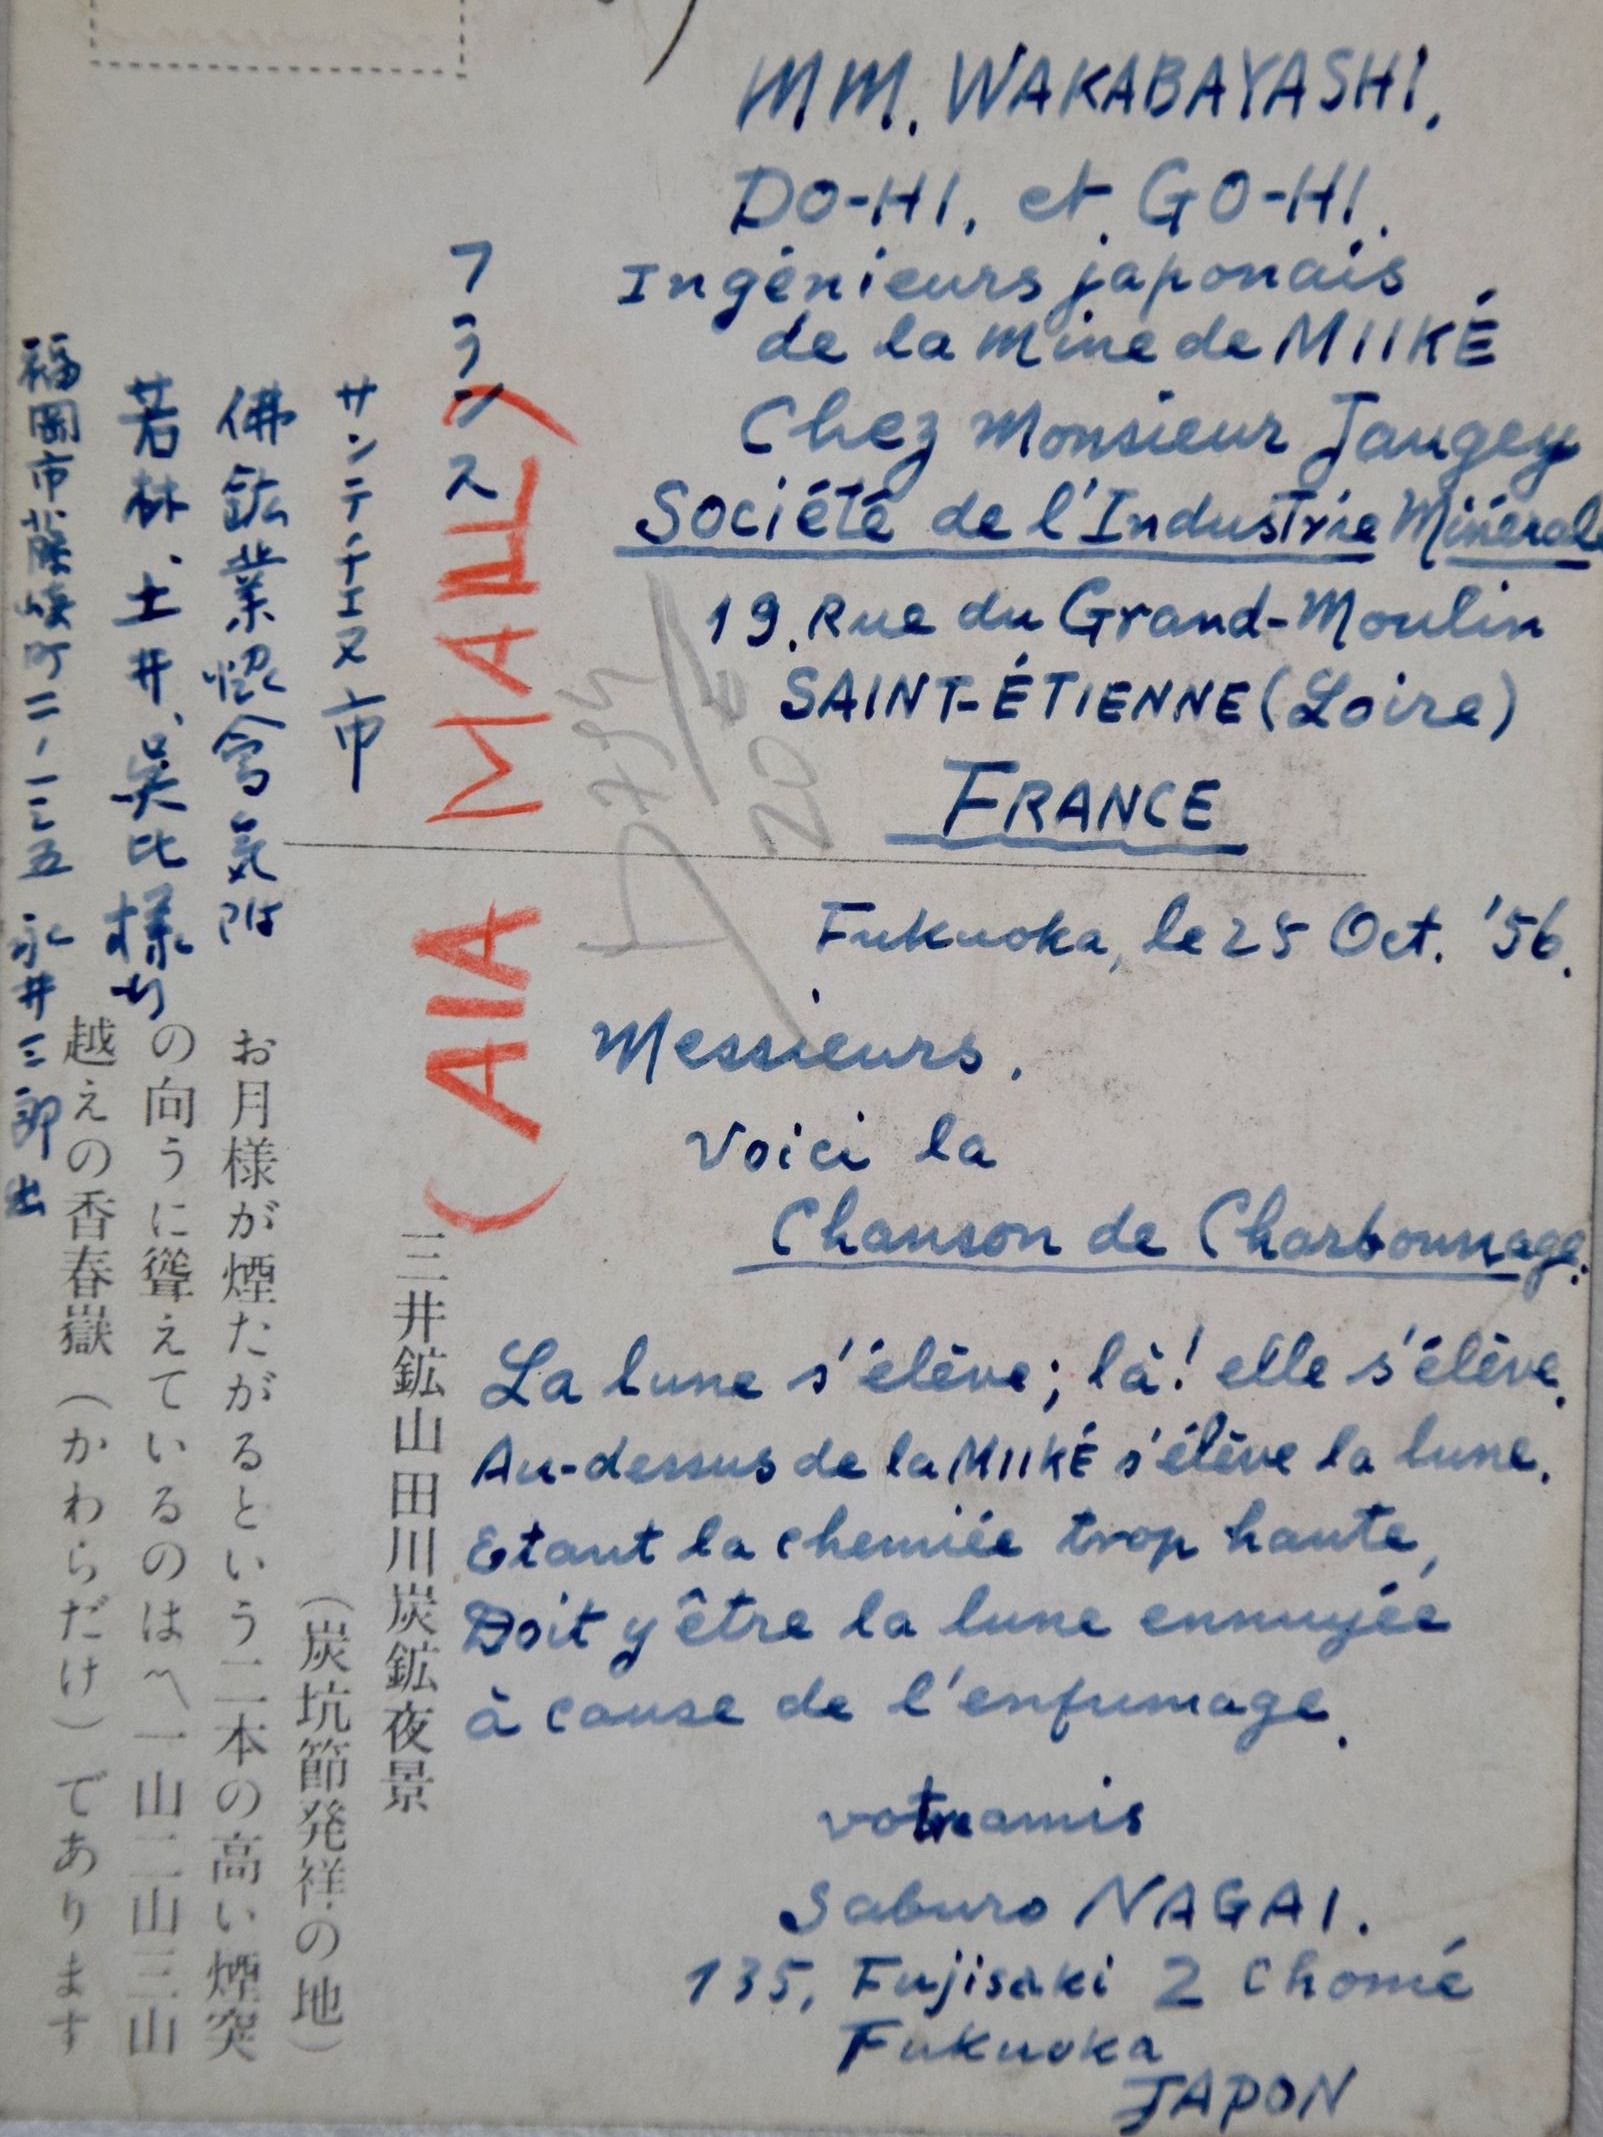 MM. WAKABAYASHI,
DO-HI, et GO-HI.
Ingénieurs japonais
de la mine de MIIKÉ
Chez Monsieur Jaugey
Société de l'Industrie Minérale
19, Rue du Grand-Moulin
SAINT-ÉTIENNE (Loire)
FRANCE
Fukuoka, le 25 Oct. '56.
Messieurs.
Voici la
Chanson de Charbonnage.
La lune s'élève; là! elle s'élève.
Au-dessus de la MIIKÉ s'élève la lune.
Etant la chemiée trop haute,
Doit y être la lune ennuyée
à cause de l'enfumage.
votre amis
Saburo NAGAI.
135, Fujisaki 2 Chomé
Fukuoka
JAPON
フランス
(AIA MAIL)
サンテチエヌ市
佛鉱業協會気附
若林、土井、呉比様
福岡市藤崎町二ノ一三五 永井三郎出
三井鉱山田川炭鉱夜景
(炭坑節発祥の地)
お月様が煙たがるという二本の高い煙突
の向うに聳えているのはへ一山二山三山
越えの香春嶽(かわらだけ)であります
20